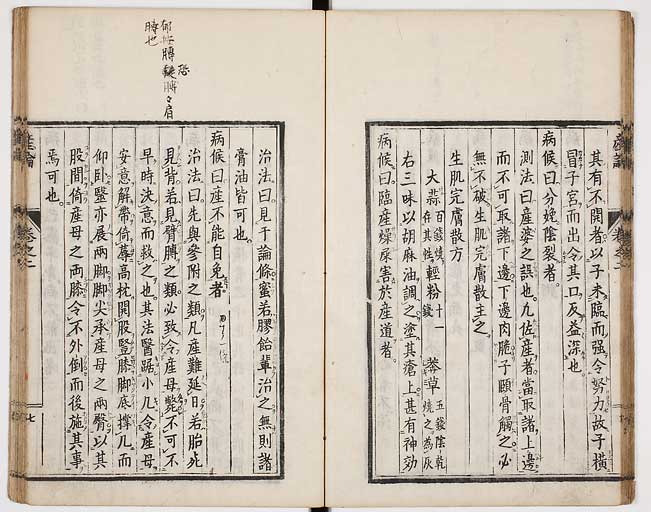 其有不開者以子未臨而强令努力故子横
冒子宮而出令其口反益深也
病候曰分娩陰裂者
測法曰産婆之誤也凡佐産者當取諸上邊
而不可取諸下邊下邊肉脆子頤骨觸之必
無不破生肌完膚散主之
生肌完膚散方
大蒜 輕粉 十一錢 茶草 五錢陰乾燒之為灰
右三味以胡麻油調之塗其瘡上甚有神効
病候曰臨産燥屎害於産道者
治法曰見于論條蜜若膠飴輩治之無則諸
膏油皆可也
病候曰産不能自免者
治法曰先與參附之類凡産難延日若胎死
見背若見臂膊之類必致令産母斃不可不
早時決意而救之也其法醫踞小几令産母
安意解帶倚蓐高枕開股豎膝脚底撐几而
仰臥醫亦展兩脚脚尖承産母之兩臀以其
股間倚産母之兩膝令不外倒而後施其事
焉可也
産論
卷之二
七
膊也